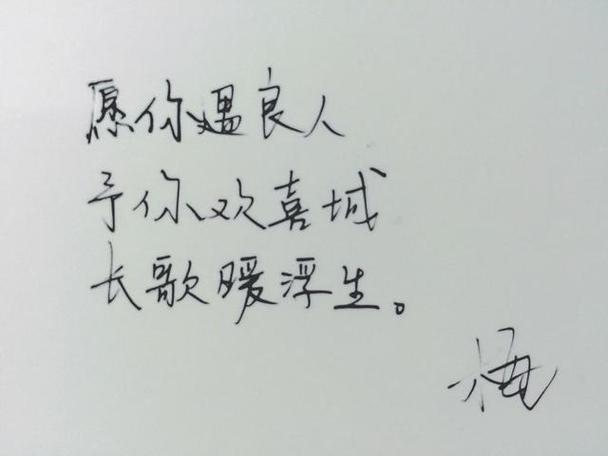 愿你遇良人
予你欢喜城
长歌暖浮生。